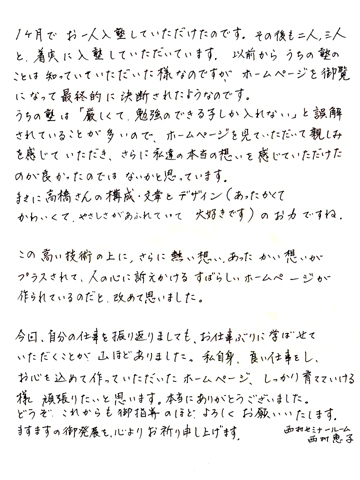 1ヶ月で お一人入塾していただけたのです。その後も二人、三人
と、着実に入塾していただいています。以前から うちの塾の
ことは知っていていただいた様なのですが、ホームページを御覧
になって最終的に決断されたようなのです。
うちの塾は「厳しくて、勉強のできる子しか入れない」と誤解
されていることが多いので、ホームページを見ていただいて親しみ
を感じていただき、さらに私達の本当の想いを感じていただけた
のが良かったのでは ないかと思っています。
まさに高橋さんの構成・文章とデザイン（あったかくて
かわいくて、やさしさがあふれていて 大好きです）のお力ですね。
この高い技術の上に、さらに熱い想い、あったかい想いが
プラスされて、人の心に訴えかける すばらしいホームページが
作られているのだと、改めて思いました。
今回、自分の仕事を振り返りましても、お仕事ぶりに学ばせて
いただくことが 山ほどありました。私自身、良い仕事をし、
お心を込めて作っていただいた ホームページ、しっかり育てていける
様 頑張りたいと思います。本当にありがとうございました。
どうぞ、これからも御指導のほど、よろしくお願いいたします。
ますますの御発展を、心よりお祈り申し上げます。
西村セミナールーム
西村 恵子